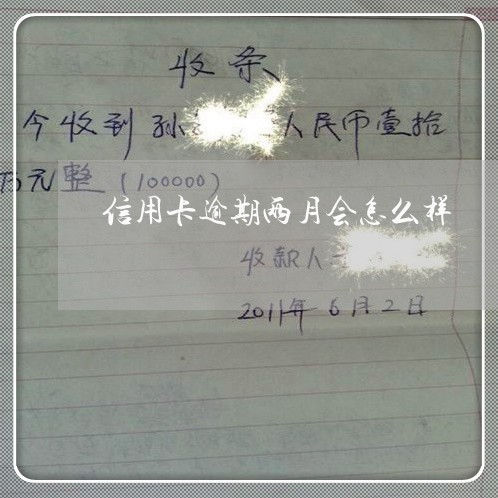 收条
今收到孙 人民币壹拾
万元整(100000)
信用卡逾期两月会怎么样
收款人
2011年6月2日